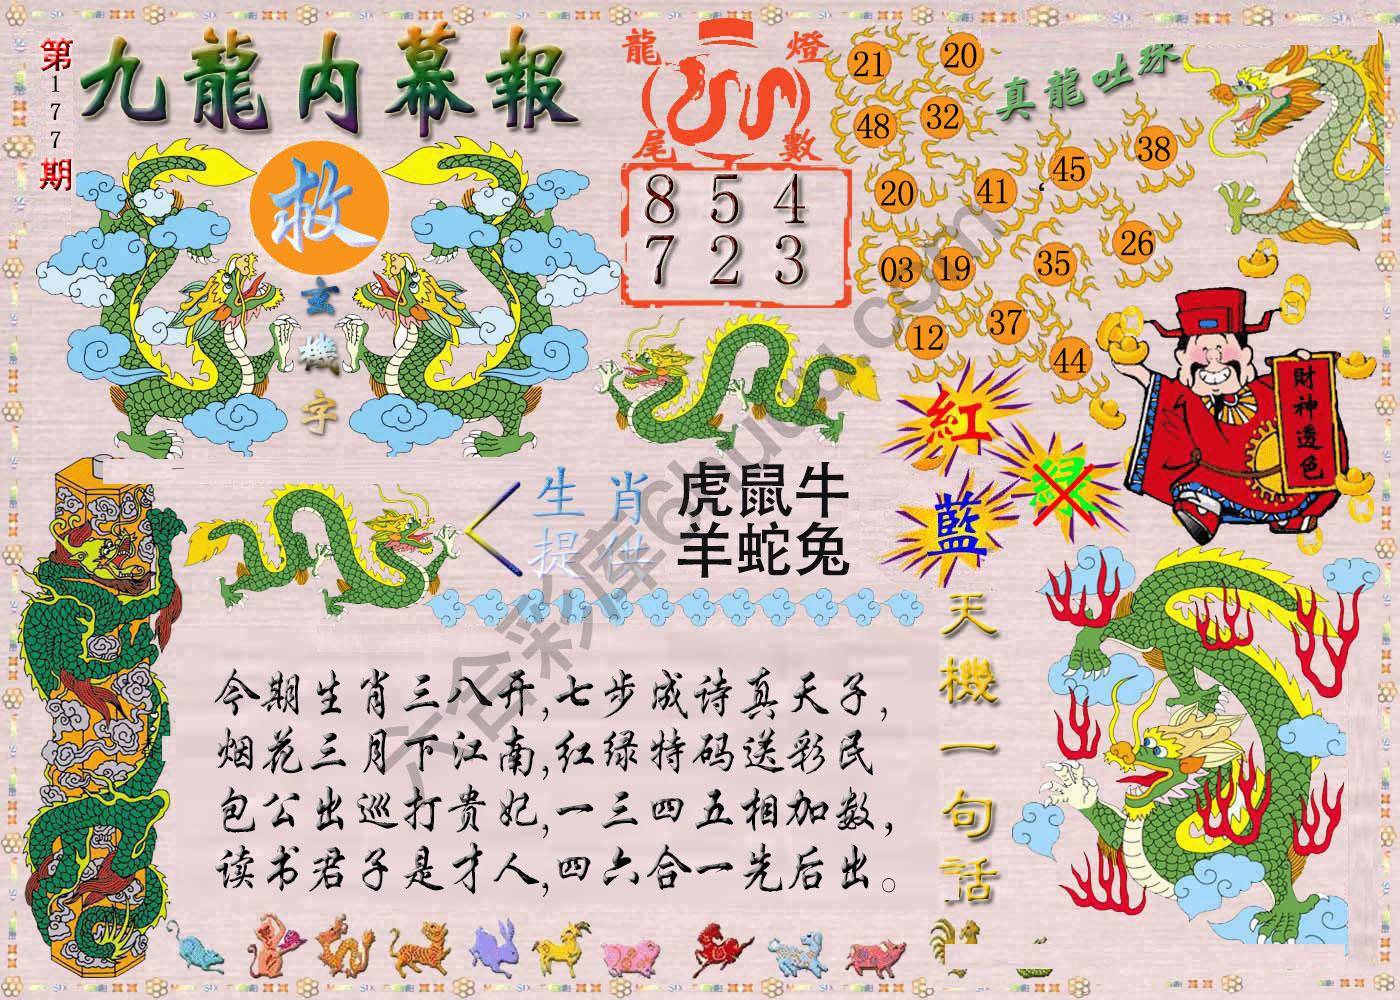 第177期
九龍内幕報
救
玄機字
龍燈尾數
8 5 4
7 2 3
真龍吐珠
21
20
48
32
45
38
20
41
03
19
35
26
12
37
44
財神透色
紅
綠
藍
生肖
提供
虎鼠牛
羊蛇兔
今期生肖三八开,七步成诗真天子,
烟花三月下江南,红绿特码送彩民
包公出巡打贵妃,一三四五相加数,
读书君子是才人,四六合一先后出。
天機一句話
六合彩库6huuu.com